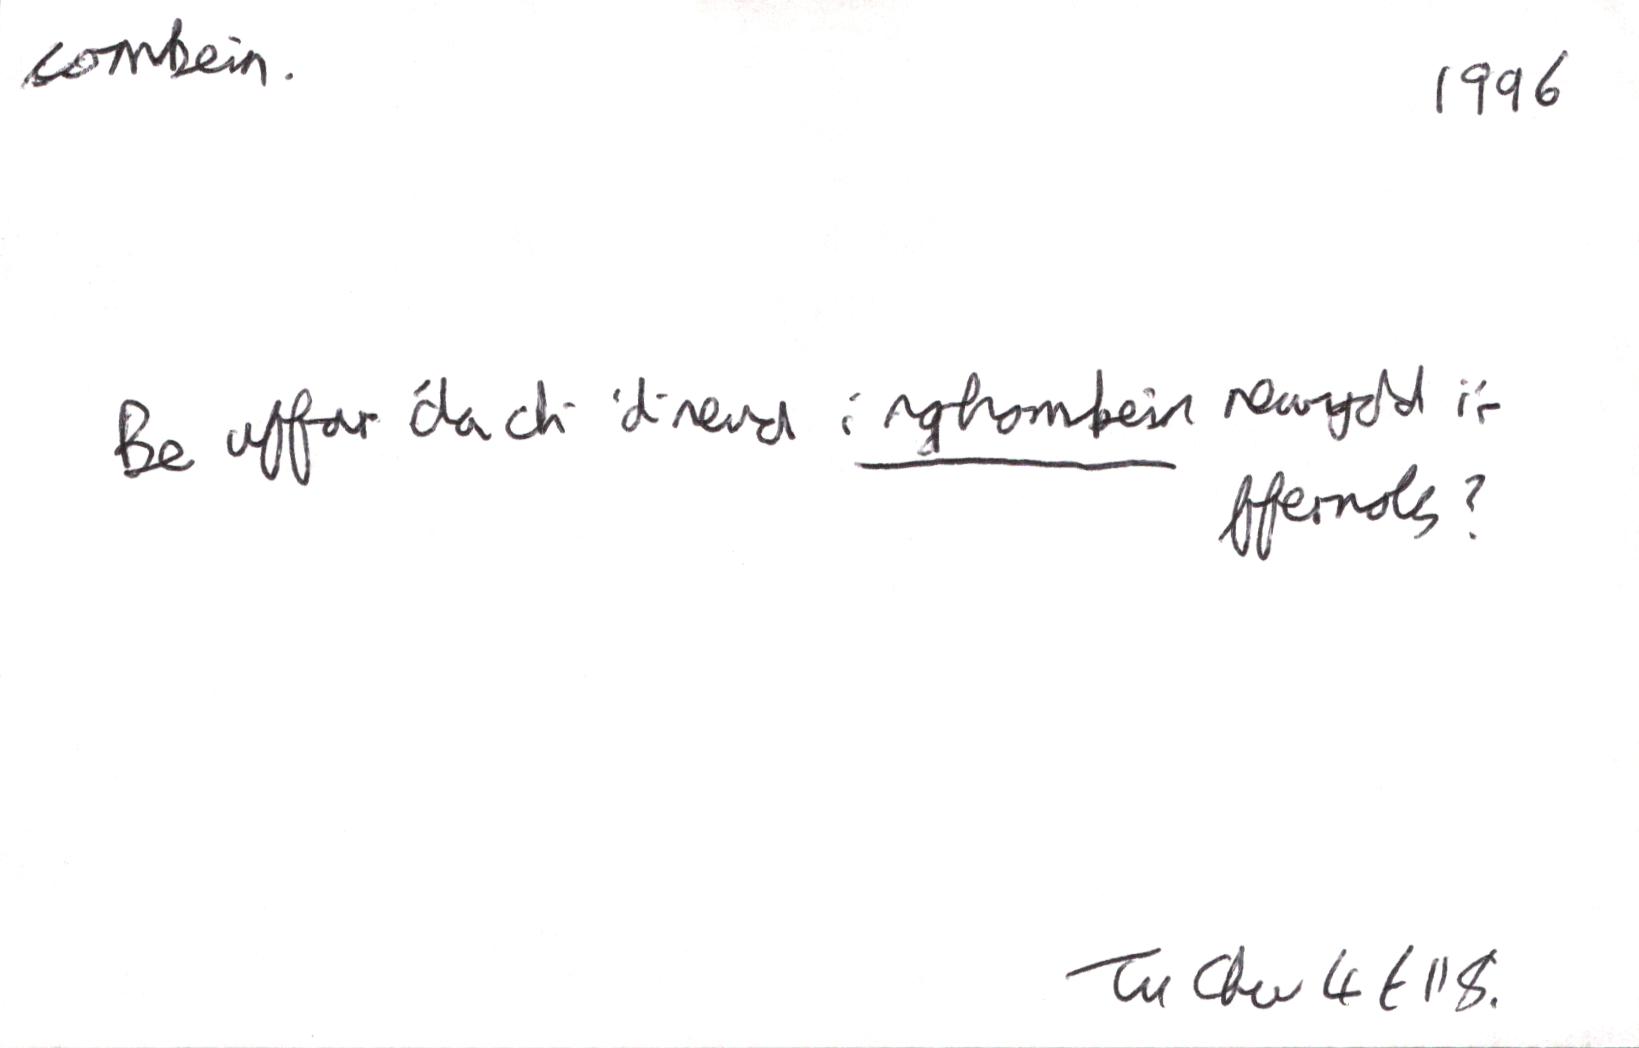 combein.
1996
Be uffar 'da chi 'di neud i nghombein newydd i'r
ffernols?
Tu Chw 4 t 118.